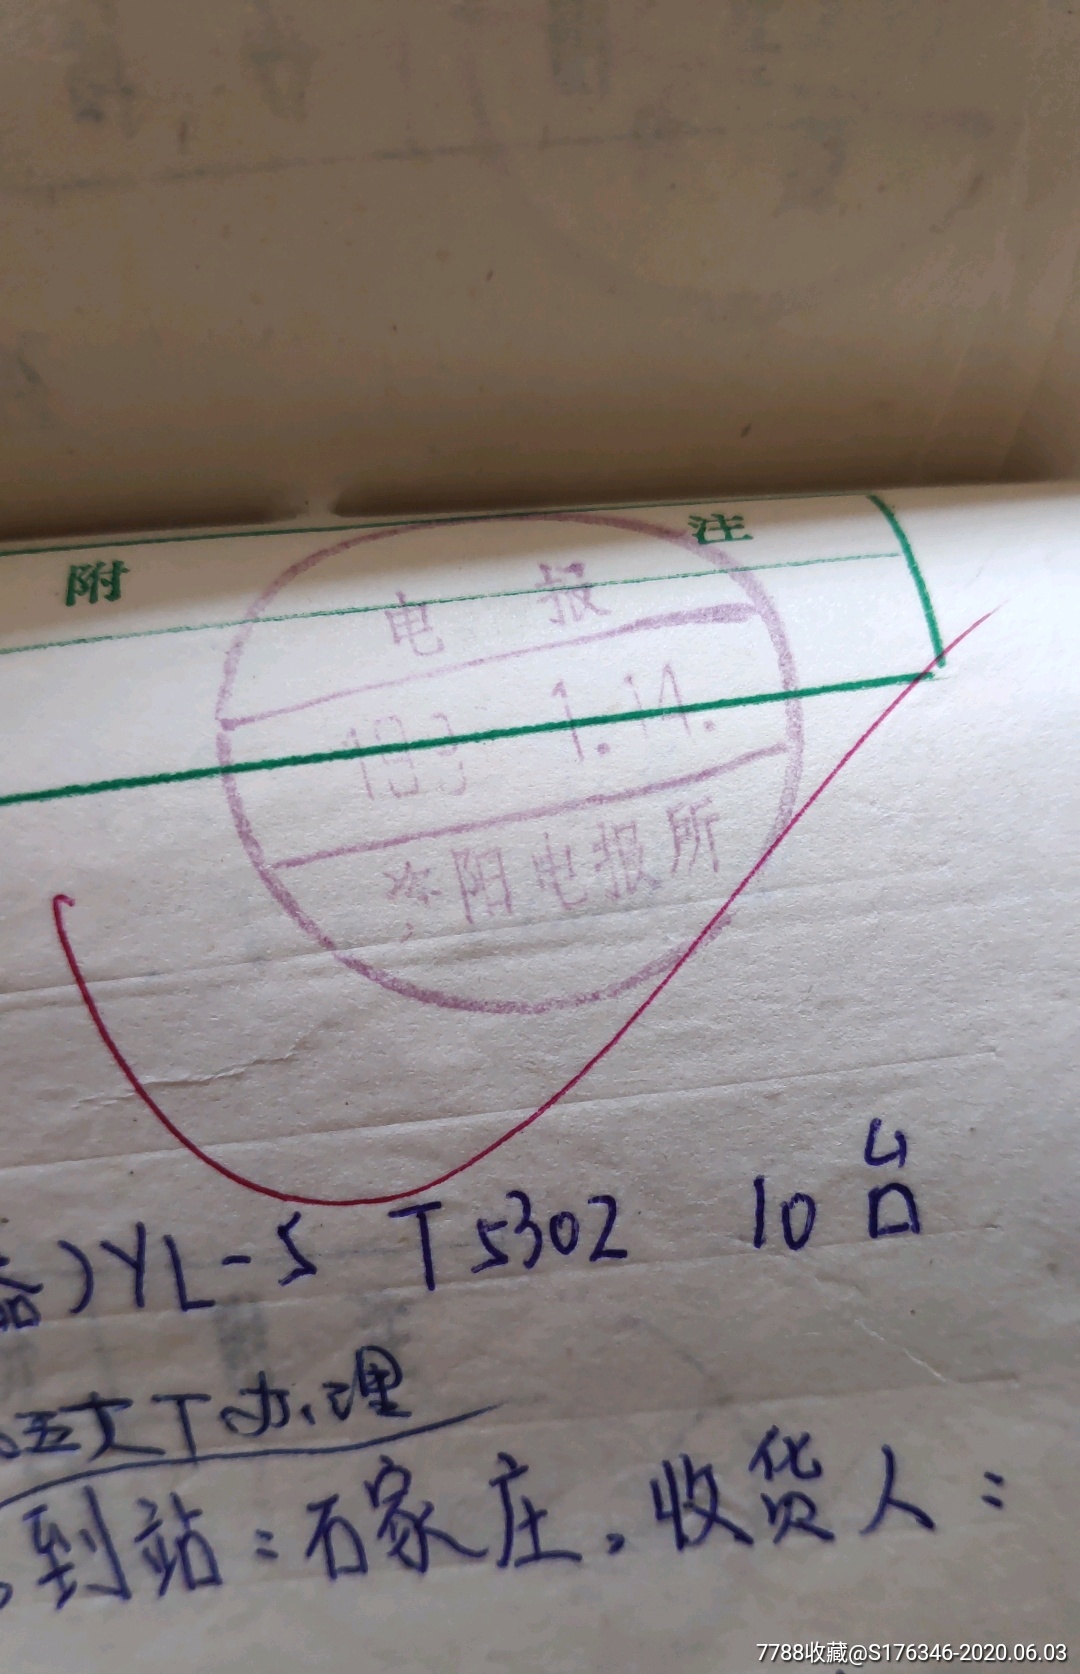 附 注
电 报
1.14.
阳电报所
)YL-5 T5302 10台
办理
到站:石家庄,收货人:
7788收藏@S176346-2020.06.03